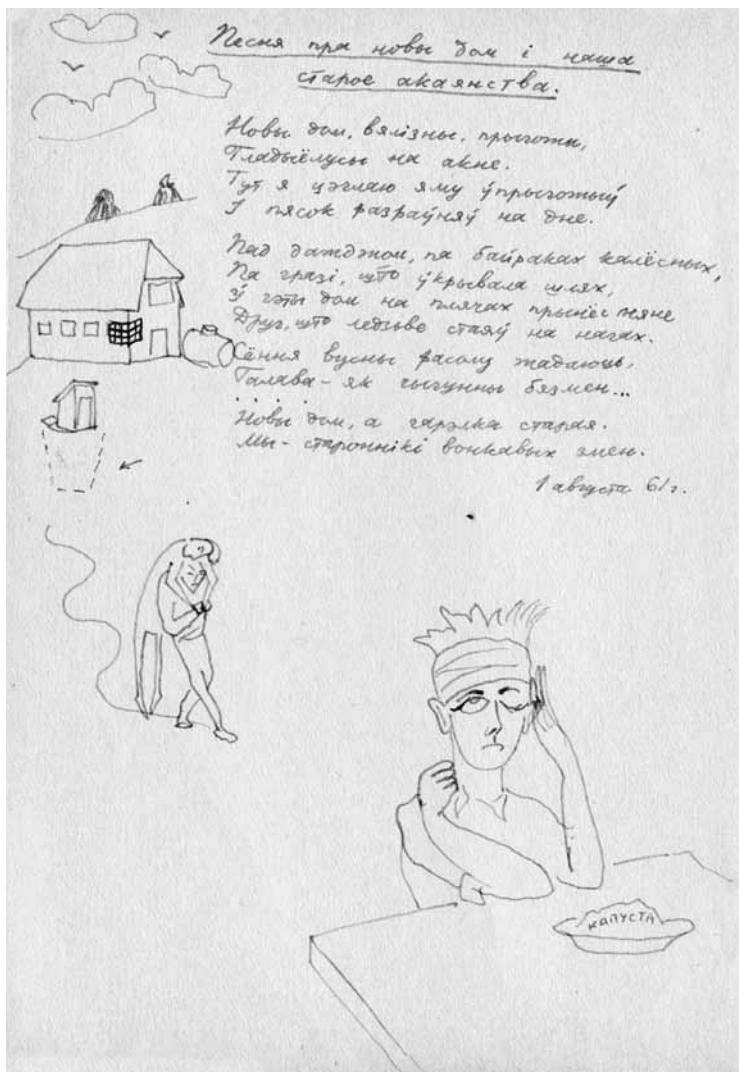 Песня пра новы дом і наша
старое акаянства.
Новы дом, вялізны, прыгожы,
Гладыёлусы на акне.
Тут я цэглаю яму ўпрыгожыў
І пясок разраўняў на дне.
Пад дажджом, па байраках калёсных,
Па гразі, што ўкрывала шлях,
Ў гэты дом на плячах прынёс мяне
Друг, што ледзьве стаяў на нагах.
Сёння вусны расолу жадаюць,
Галава – як чыгунны бязмен...
. . . . .
Новы дом, а гарэлка старая.
Мы – староннікі вонкавых змен.
1 августа 61 г.
КАПУСТА